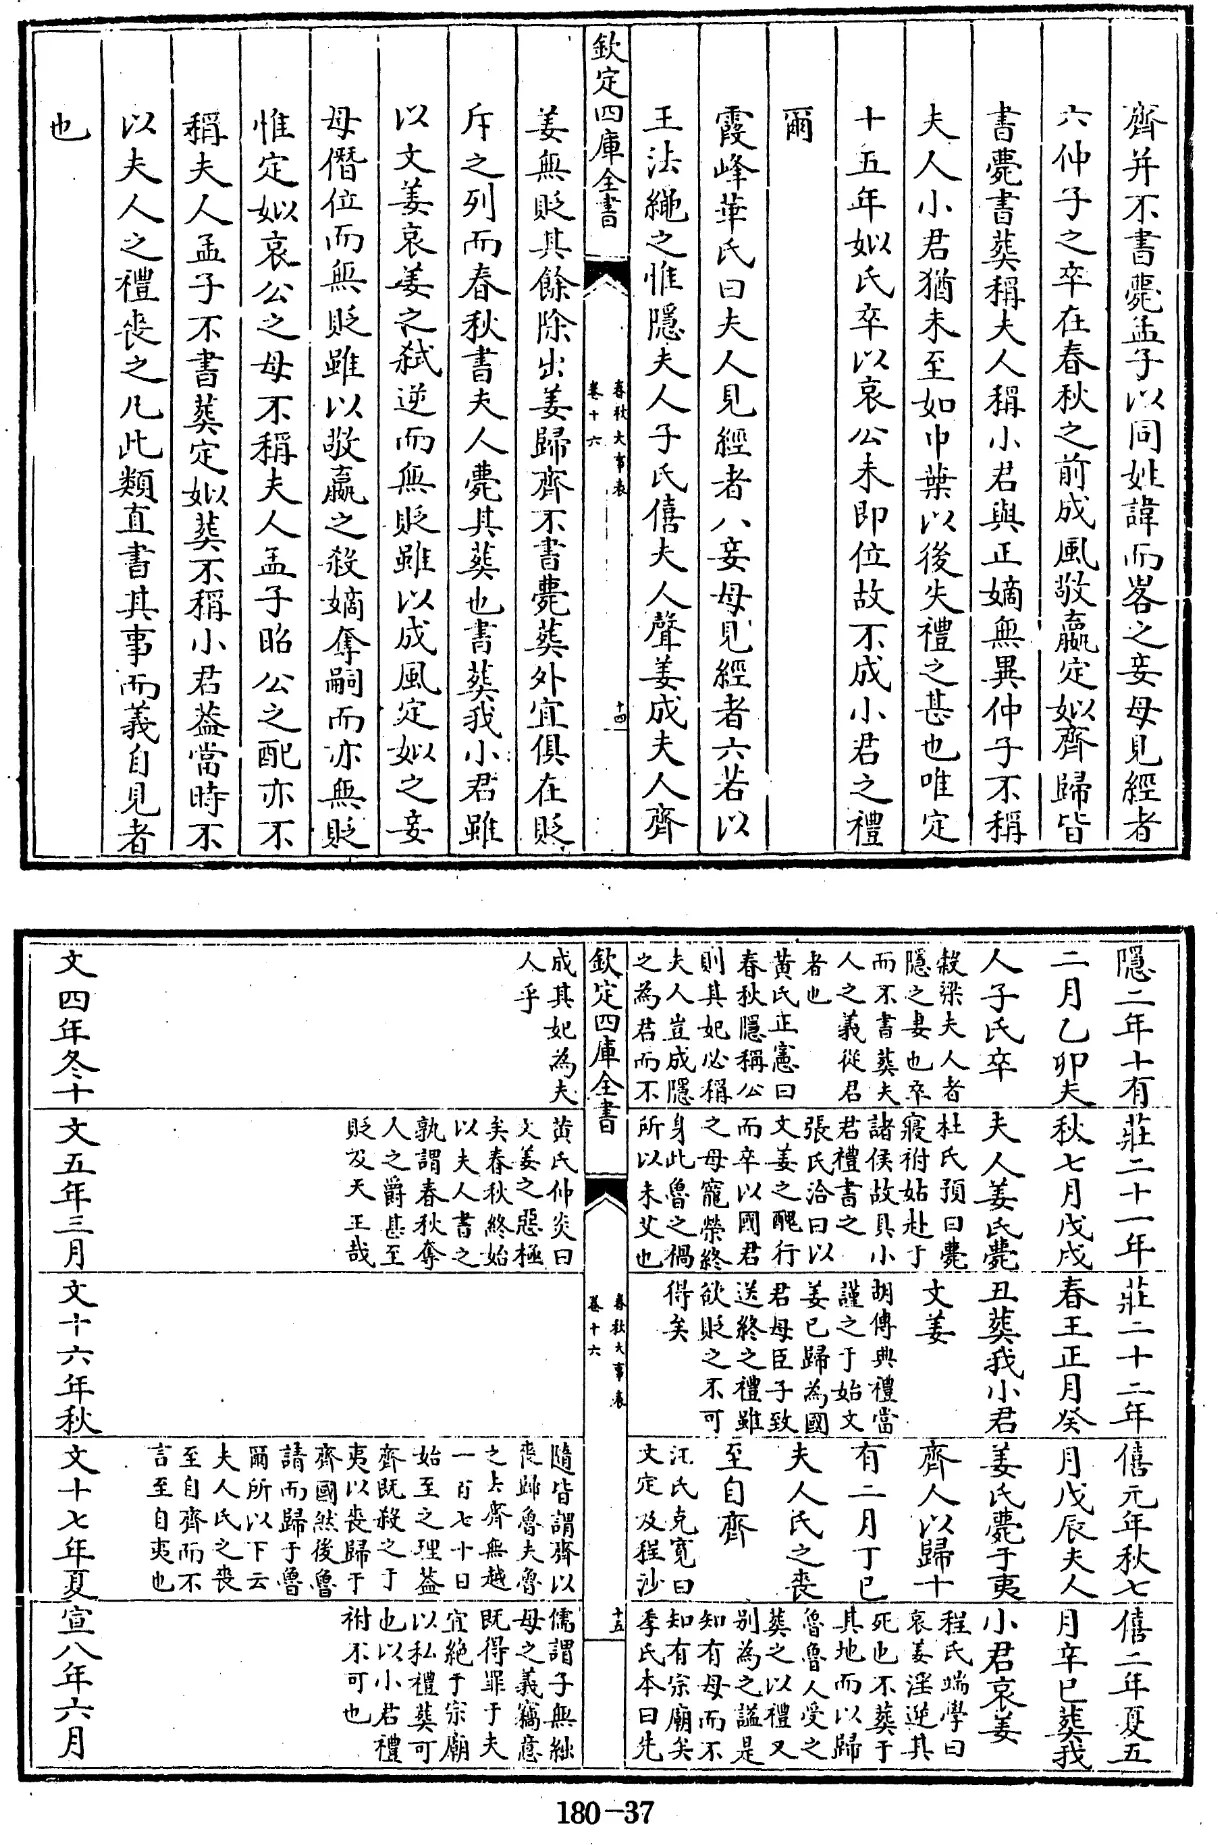 齊并不書薨孟子以同姓諱而畧之妾母見經者
六仲子之卒在春秋之前成風敬嬴定姒齊歸皆
書薨書葬稱夫人稱小君與正嫡無異仲子不稱
夫人小君猶未至如中葉以後失禮之甚也唯定
十五年姒氏卒以哀公未即位故不成小君之禮
爾
霞峰華氏曰夫人見經者八妾母見經者六若以
王法繩之惟隱夫人子氏僖夫人聲姜成夫人齊
欽定四庫全書
春秋大事表
卷十六
十四
姜無貶其餘除出姜歸齊不書薨葬外宜俱在貶
斥之列而春秋書夫人薨其葬也書葬我小君雖
以文姜哀姜之弒逆而無貶雖以成風定姒之妾
母僭位而無貶雖以敬嬴之殺嫡奪嗣而亦無貶
惟定姒哀公之母不稱夫人孟子昭公之配亦不
稱夫人孟子不書葬定姒葬不稱小君葢當時不
以夫人之禮喪之凡此類直書其事而義自見者
也
隱二年十有
二月乙卯夫
人子氏卒
穀梁夫人者
隱之妻也卒
而不書葬夫
人之義從君
者也
黄氏正憲曰
春秋隱稱公
則其妃必稱
夫人豈成隱
之為君而不
莊二十一年
秋七月戊戌
夫人姜氏薨
杜氏預曰薨
寢祔姑赴于
諸侯故具小
君禮書之
張氏洽曰以
文姜之醜行
而卒以國君
之母寵榮終
身此魯之禍
所以未艾也
莊二十二年
春王正月癸
丑葬我小君
文姜
胡傳典禮當
謹之于始文
姜已歸為國
君母臣子致
送終之禮雖
欲貶之不可
得矣
僖元年秋七
月戊辰夫人
姜氏薨于夷
齊人以歸十
有二月丁巳
夫人氏之喪
至自齊
汪氏克寬曰
文定及程沙
僖二年夏五
月辛巳葬我
小君哀姜
程氏端學曰
哀姜淫逆其
死也不葬于
其地而以歸
魯魯人受之
葬之以禮又
别為之諡是
知有母而不
知有宗廟矣
季氏本曰先
欽定四庫全書
春秋大事表
卷十六
十五
成其妃為夫
人乎
文四年冬十
黄氏仲炎曰
文姜之惡極
矣春秋終始
以夫人書之
孰謂春秋奪
人之爵甚至
貶及天王哉
文五年三月
文十六年秋
隨皆謂齊以
喪歸魯夫魯
之去齊無越
一百七十日
始至之理葢
齊既殺之于
夷以喪歸于
齊國然後魯
請而歸于魯
爾所以下云
夫人氏之喪
至自齊而不
言至自夷也
文十七年夏
儒謂子無絀
母之義竊意
既得罪于夫
宜絶于宗廟
以私禮葬可
也以小君禮
祔不可也
宣八年六月
180-37